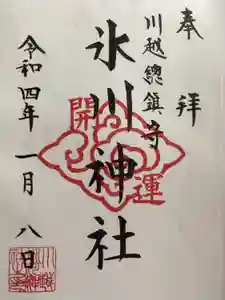 奉拝
川越總鎮守
氷川神社
開運
令和四年一月八日